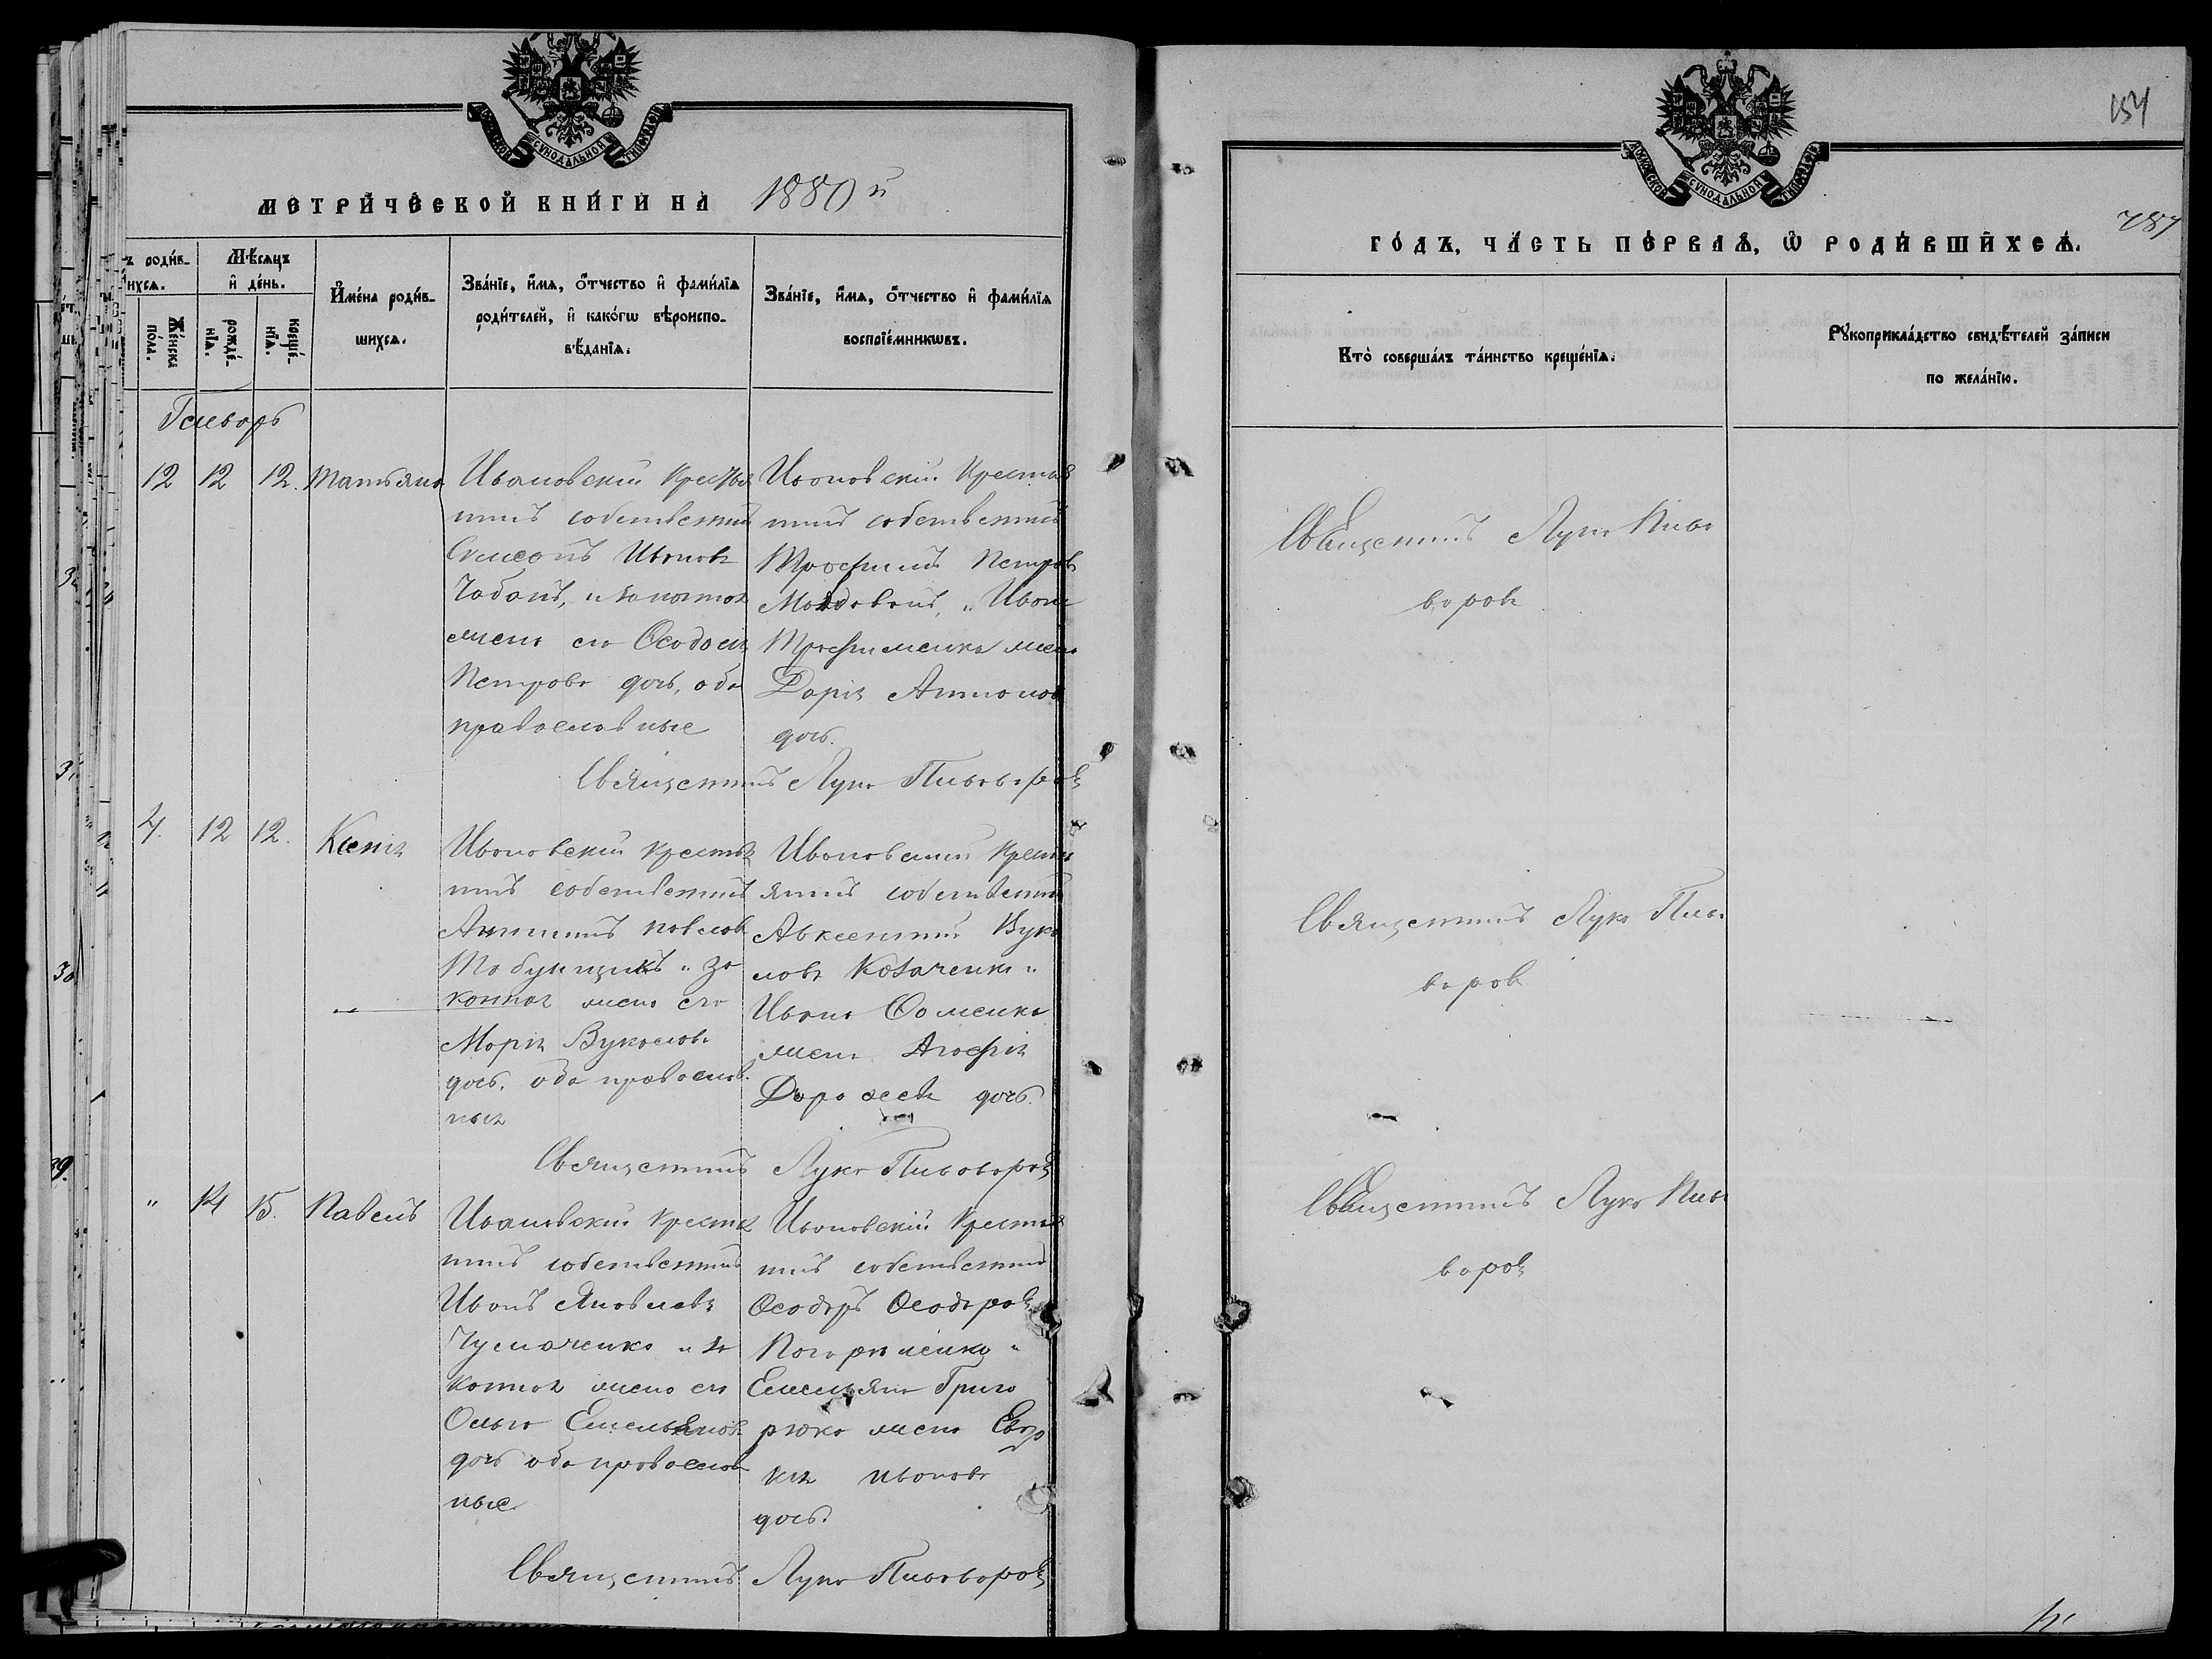 МОСКОВСКОЙ СѴНОДАЛЬНОЙ ТИПОГРАФІИ
МЕТРИ́ЧЕСКОЙ КНИ́ГИ НА 1880 й
Мѣ́сяцъ
и҆ де́нь.
Же́нска
по́ла.
рожде́-
нїѧ.
креще́-
нїѧ.
И҆мена̀ роди́в-
шихсѧ.
Зва́нїе, и҆́мѧ, ѻ҆́тчество и҆ фами́лїѧ
роди́телей, и҆ како́гѡ вѣроиспо-
вѣ́данїѧ.
Зва́нїе, и҆́мѧ, ѻ҆́тчество и҆ фами́лїѧ
воспрїе́мникѡвъ.
Генварь
12 12 12. Татьяна
Ивановскій крестья
нинъ собственникъ
Симеонъ Ивановъ
Чабанъ, и законная
жена его Ѳеодосія
Петрова дочь, оба
православные
Ивановскій Крестья
нинъ собственникъ
Трофимъ Петровъ
Молдованъ, и Ивана
Трофименка жена
Дарія Антонова
дочь.
Священникъ Лука Пивоваровъ
4. 12 12. Ксенія
Ивановскій крестья
нинъ собственникъ
Антипъ Павловъ
Табунщикъ и за
конная жена его
Марія Вуколова
дочь, оба православ
ныя
Ивановский Кресть
янинъ собственникъ
Авксентий Вуко
ловъ Козаченко и
Ивана Фоменка
жена Агафія
Дороѳеева дочь.
Священникъ Лука Пивоваровъ
" 14 15. Павелъ
Ивановскій Крестья
нинъ собственникъ
Иванъ Яковлевъ
Чумаченко и за
конная жена его
Ольга Емельянова
дочь оба православ
ные
Ивановскій Крестья
нинъ собственникъ
Ѳеодоръ Ѳеодоровъ
Погориленко и
Емельяна Григо
рюка жена Евдо
кія Иванова
дочь.
Священникъ Лука Пивоваровъ
МОСКОВСКОЙ СѴНОДАЛЬНОЙ ТИПОГРАФІИ
154
787
ГО́ДЪ, ЧА́СТЬ ПЕ́РВАЯ, Ѽ РОДИ́ВШИХСЯ.
Кто̀ соверша́лъ та́инство креще́нїѧ.
Рꙋкоприкла́дство свидѣ́телей за́писи
по жела́нїю.
Священникъ Лука Пиво
варовъ
Священникъ Лука Пиво
варовъ
Священникъ Лука Пиво
варовъ